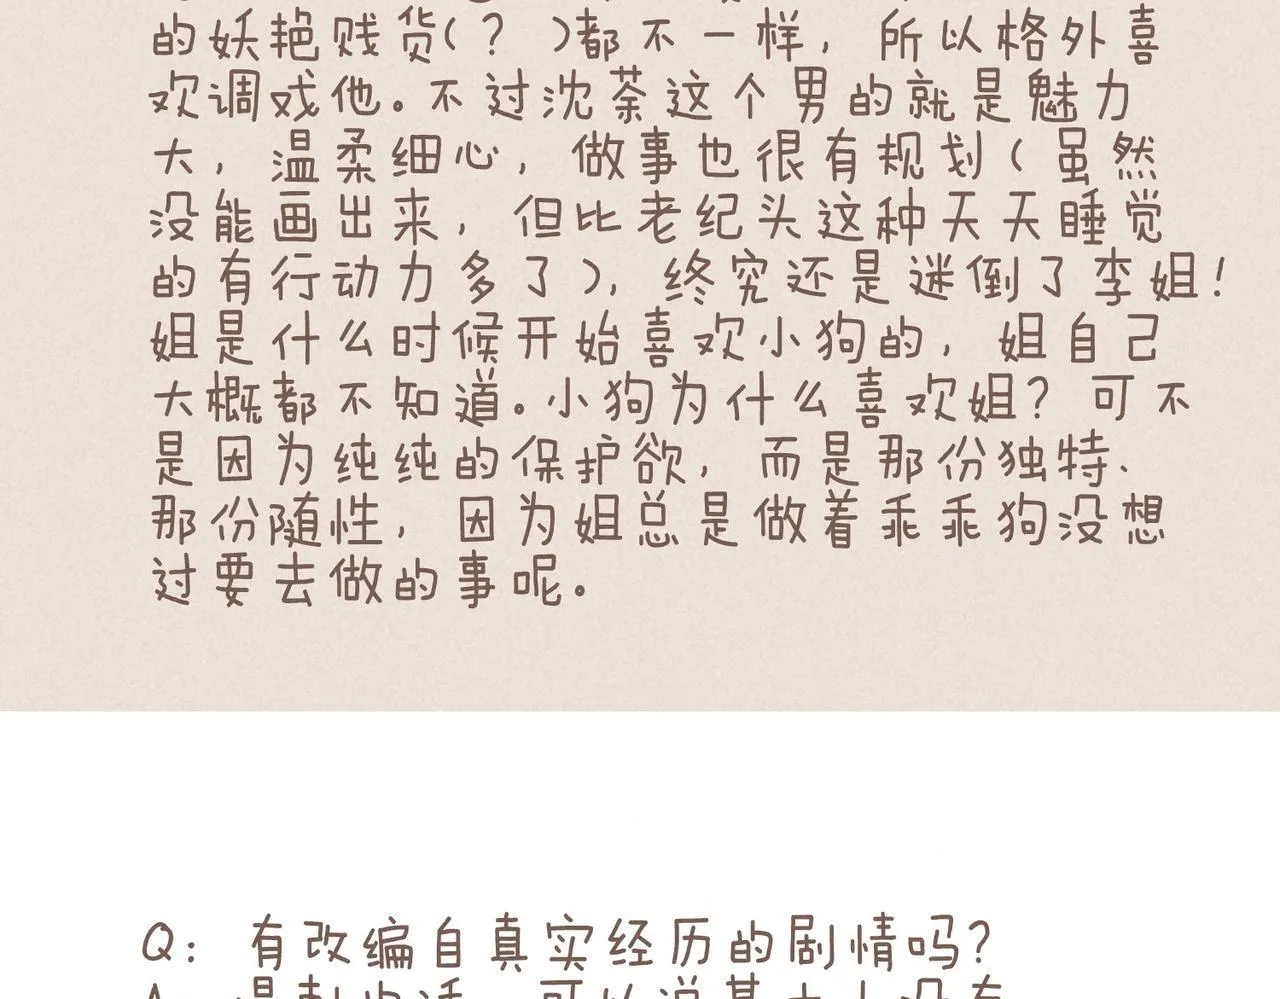 的妖艳贱货(？)都不一样，所以格外喜
欢调戏他。不过沈荼这个男的就是魅力
大，温柔细心，做事也很有规划(虽然
没能画出来，但比老纪头这种天天睡觉
的有行动力多了)，终究还是迷倒了李姐！
姐是什么时候开始喜欢小狗的，姐自己
大概都不知道。小狗为什么喜欢姐？可不
是因为纯纯的保护欲，而是那份独特、
那份随性，因为姐总是做着乖乖狗没想
过要去做的事呢。
Q：有改编自真实经历的剧情吗？